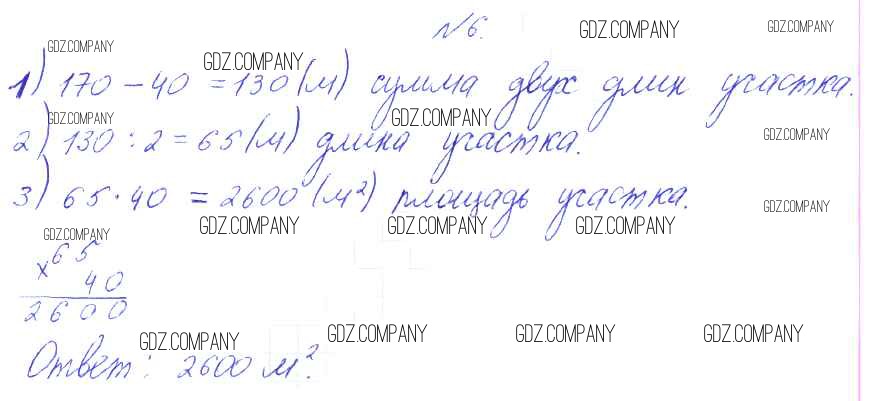 №6. GDZ.COMPANY GDZ.COMPANY
GDZ.COMPANY GDZ.COMPANY
1) 170 - 40 = 130 (м) сумма двух длин участка.
GDZ.COMPANY GDZ.COMPANY GDZ.COMPANY
2) 130 : 2 = 65 (м) длина участка.
3) 65 · 40 = 2600 (м²) площадь участка.
GDZ.COMPANY
GDZ.COMPANY GDZ.COMPANY GDZ.COMPANY GDZ.COMPANY
× 65
40
2600
GDZ.COMPANY GDZ.COMPANY GDZ.COMPANY GDZ.COMPANY
Ответ: 2600 м².